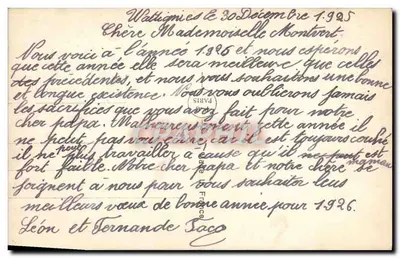 Wattignies le 30 Décembre 1925
Chère Mademoiselle Montvert.
Nous voici à l'année 1926 et nous espérons
que cette année elle sera meilleure que celles
des précédentes, et nous vous souhaitons une bonne
et longue existence. Nous vous oublierons jamais
les sacrifices que vous avez fait pour notre
cher papa. cette année il
ne peut pas vous écrire, car il est toujours couché
il ne peut plus travailler à cause qu'il est
fort faible. Notre cher papa et notre chère maman se
joignent à nous pour vous souhaiter leurs
meilleurs vœux de bonne année pour 1926.
Léon et Fernande
PARIS
France